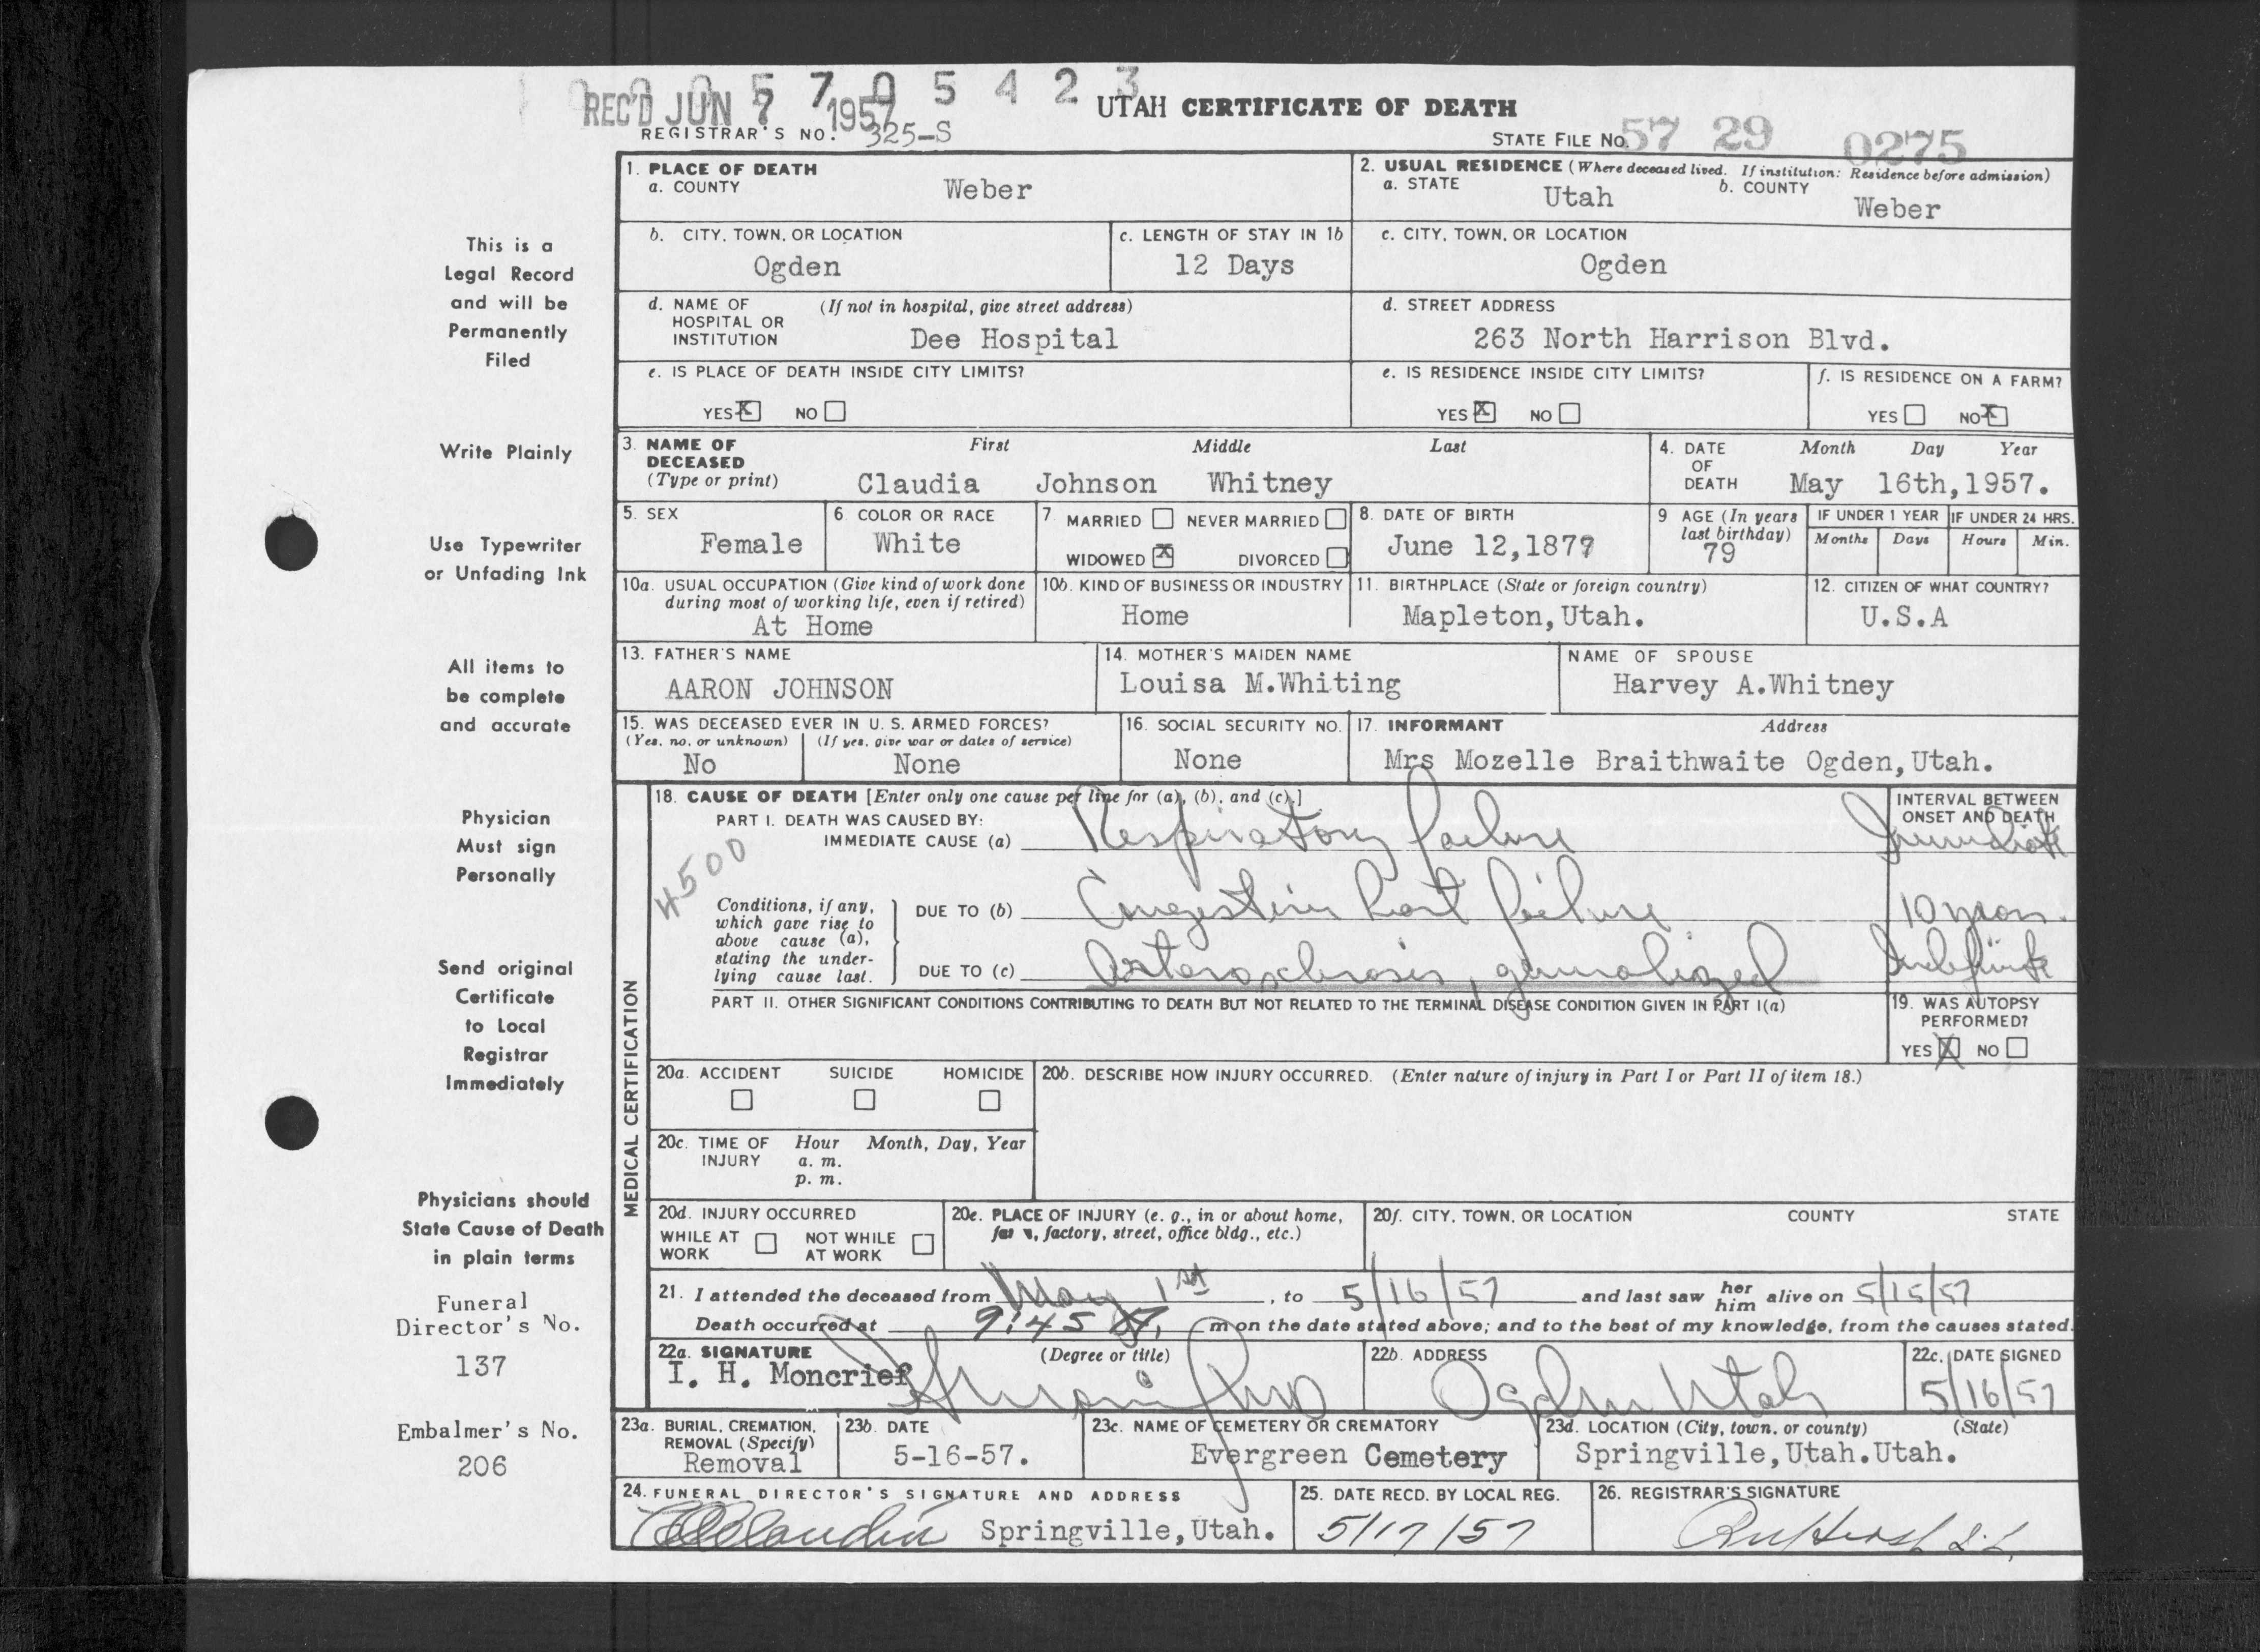 0 0 0 5 7 0 5 4 2 3
REC'D JUN 7 1957
UTAH CERTIFICATE OF DEATH
REGISTRAR'S NO. 325-S
STATE FILE No. 57 29 0275
1. PLACE OF DEATH
a. COUNTY Weber
2. USUAL RESIDENCE (Where deceased lived. If institution: Residence before admission)
a. STATE Utah b. COUNTY Weber
b. CITY, TOWN, OR LOCATION Ogden
c. LENGTH OF STAY IN 1b 12 Days
c. CITY, TOWN, OR LOCATION Ogden
d. NAME OF HOSPITAL OR INSTITUTION (If not in hospital, give street address) Dee Hospital
d. STREET ADDRESS 263 North Harrison Blvd.
e. IS PLACE OF DEATH INSIDE CITY LIMITS?
YES X NO
e. IS RESIDENCE INSIDE CITY LIMITS?
YES X NO
f. IS RESIDENCE ON A FARM?
YES NO X
3. NAME OF DECEASED (Type or print) First Middle Last
Claudia Johnson Whitney
4. DATE OF DEATH Month Day Year
May 16th, 1957.
5. SEX Female
6 COLOR OR RACE White
7 MARRIED NEVER MARRIED
WIDOWED X DIVORCED
8. DATE OF BIRTH June 12, 1877
9 AGE (In years last birthday) 79
IF UNDER 1 YEAR Months Days
IF UNDER 24 HRS. Hours Min.
10a. USUAL OCCUPATION (Give kind of work done during most of working life, even if retired)
At Home
10b. KIND OF BUSINESS OR INDUSTRY
Home
11. BIRTHPLACE (State or foreign country)
Mapleton, Utah.
12. CITIZEN OF WHAT COUNTRY?
U.S.A
13. FATHER'S NAME
AARON JOHNSON
14. MOTHER'S MAIDEN NAME
Louisa M.Whiting
NAME OF SPOUSE
Harvey A.Whitney
15. WAS DECEASED EVER IN U. S. ARMED FORCES?
(Yes, no, or unknown) (If yes, give war or dates of service)
No None
16. SOCIAL SECURITY NO.
None
17. INFORMANT Address
Mrs Mozelle Braithwaite Ogden, Utah.
MEDICAL CERTIFICATION
18. CAUSE OF DEATH [Enter only one cause per line for (a), (b), and (c).]
INTERVAL BETWEEN ONSET AND DEATH
PART I. DEATH WAS CAUSED BY:
IMMEDIATE CAUSE (a) Respiratory failure Immediate
4500
Conditions, if any, which gave rise to above cause (a), stating the underlying cause last.
DUE TO (b) Congestive heart failure 10 years.
DUE TO (c) Arteriosclerosis, generalized Indefinite
PART II. OTHER SIGNIFICANT CONDITIONS CONTRIBUTING TO DEATH BUT NOT RELATED TO THE TERMINAL DISEASE CONDITION GIVEN IN PART I(a)
19. WAS AUTOPSY PERFORMED?
YES X NO
20a. ACCIDENT SUICIDE HOMICIDE
20b. DESCRIBE HOW INJURY OCCURRED. (Enter nature of injury in Part I or Part II of item 18.)
20c. TIME OF INJURY Hour Month, Day, Year
a. m.
p. m.
20d. INJURY OCCURRED
WHILE AT WORK NOT WHILE AT WORK
20e. PLACE OF INJURY (e. g., in or about home, farm, factory, street, office bldg., etc.)
20f. CITY, TOWN, OR LOCATION COUNTY STATE
21. I attended the deceased from May 1st, to 5/16/57 and last saw her him alive on 5/15/57
Death occurred at 9:45 m on the date stated above; and to the best of my knowledge, from the causes stated.
22a. SIGNATURE (Degree or title)
I. H. Moncrief
22b. ADDRESS
Ogden Utah
22c. DATE SIGNED
5/16/57
23a. BURIAL, CREMATION, REMOVAL (Specify)
Removal
23b. DATE
5-16-57.
23c. NAME OF CEMETERY OR CREMATORY
Evergreen Cemetery
23d. LOCATION (City, town, or county) (State)
Springville, Utah. Utah.
24. FUNERAL DIRECTOR'S SIGNATURE AND ADDRESS
Springville, Utah.
25. DATE RECD. BY LOCAL REG.
5/17/57
26. REGISTRAR'S SIGNATURE
This is a
Legal Record
and will be
Permanently
Filed
Write Plainly
Use Typewriter
or Unfading Ink
All items to
be complete
and accurate
Physician
Must sign
Personally
Send original
Certificate
to Local
Registrar
Immediately
Physicians should
State Cause of Death
in plain terms
Funeral
Director's No.
137
Embalmer's No.
206